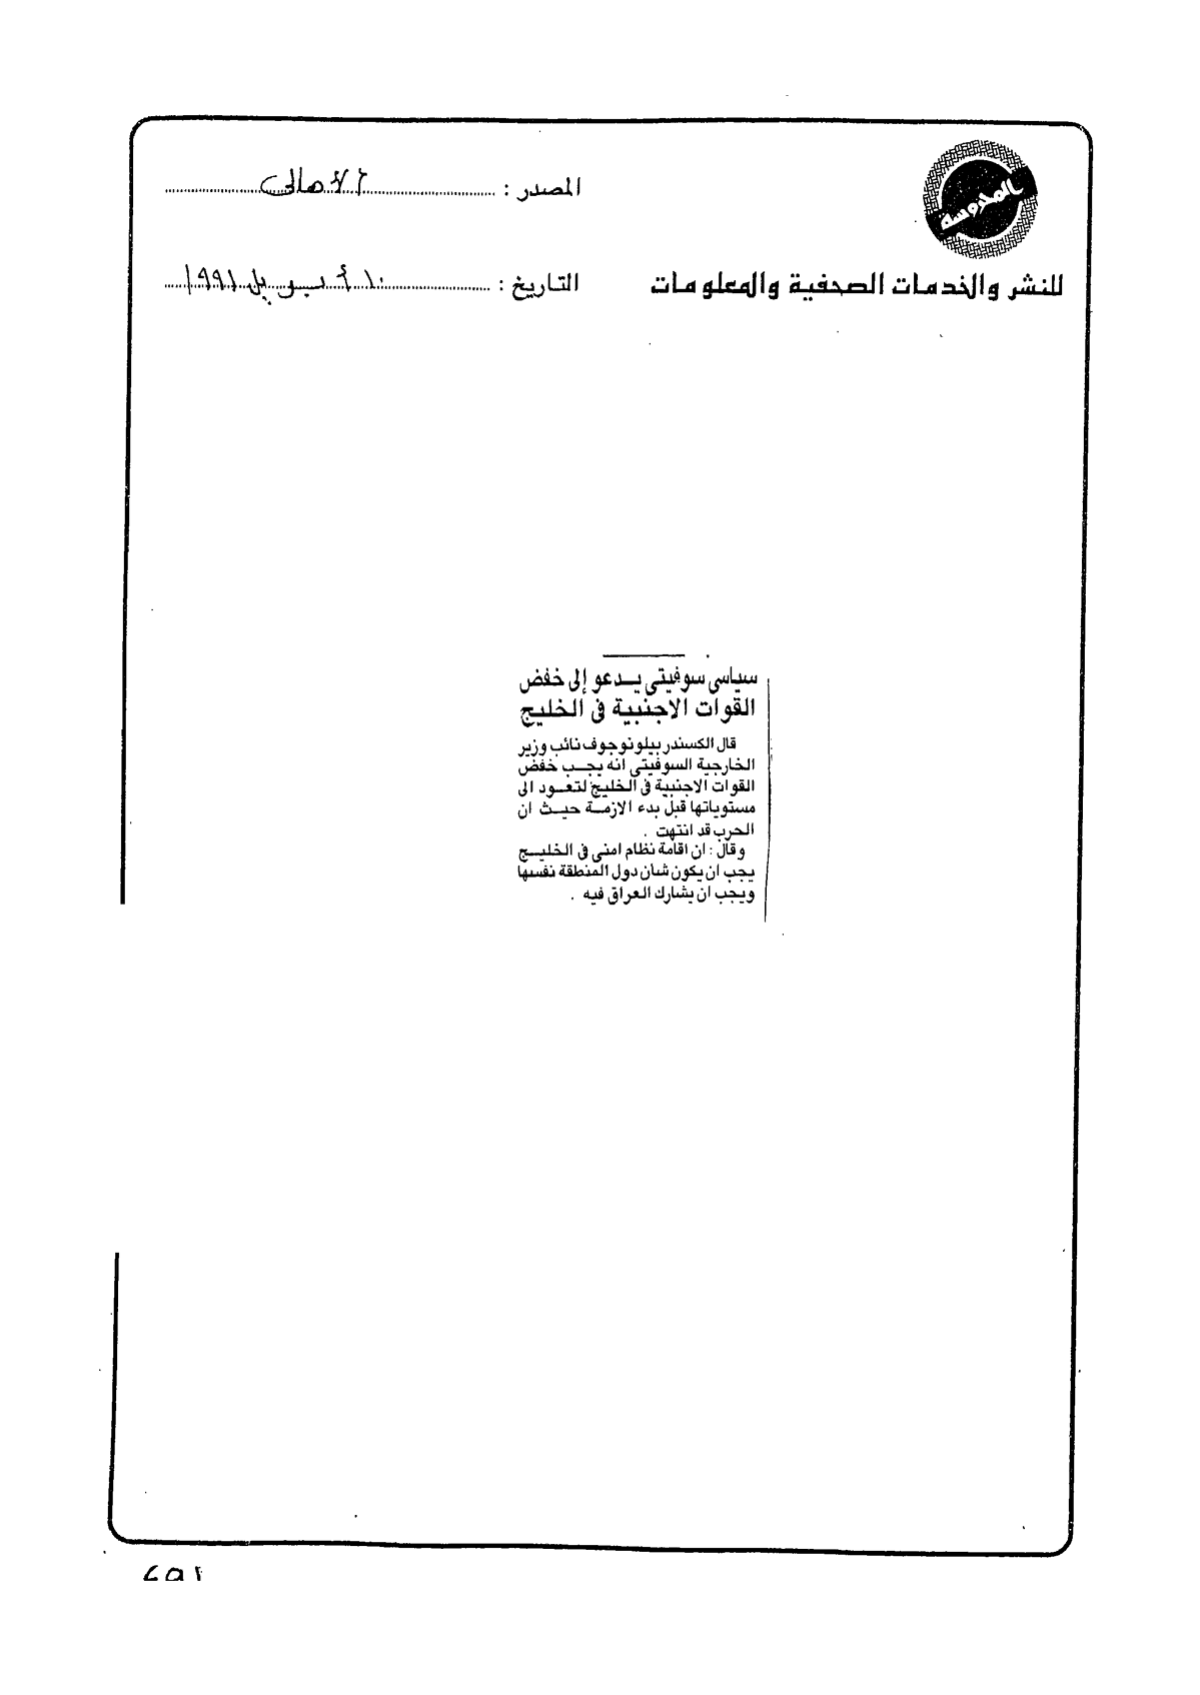 المحروسة
للنشر والخدمات الصحفية والمعلومات
المصدر : الأهالى
التاريخ : ١٠ أبريل ١٩٩١
سياسى سوفيتى يدعو إلى خفض
القوات الاجنبية فى الخليج
قال الكسندر بيلونوجوف نائب وزير
الخارجية السوفيتى انه يجب خفض
القوات الاجنبية فى الخليج لتعود الى
مستوياتها قبل بدء الازمة حيث ان
الحرب قد انتهت .
وقال : ان اقامة نظام امنى فى الخليج
يجب ان يكون شأن دول المنطقة نفسها
ويجب ان يشارك العراق فيه .